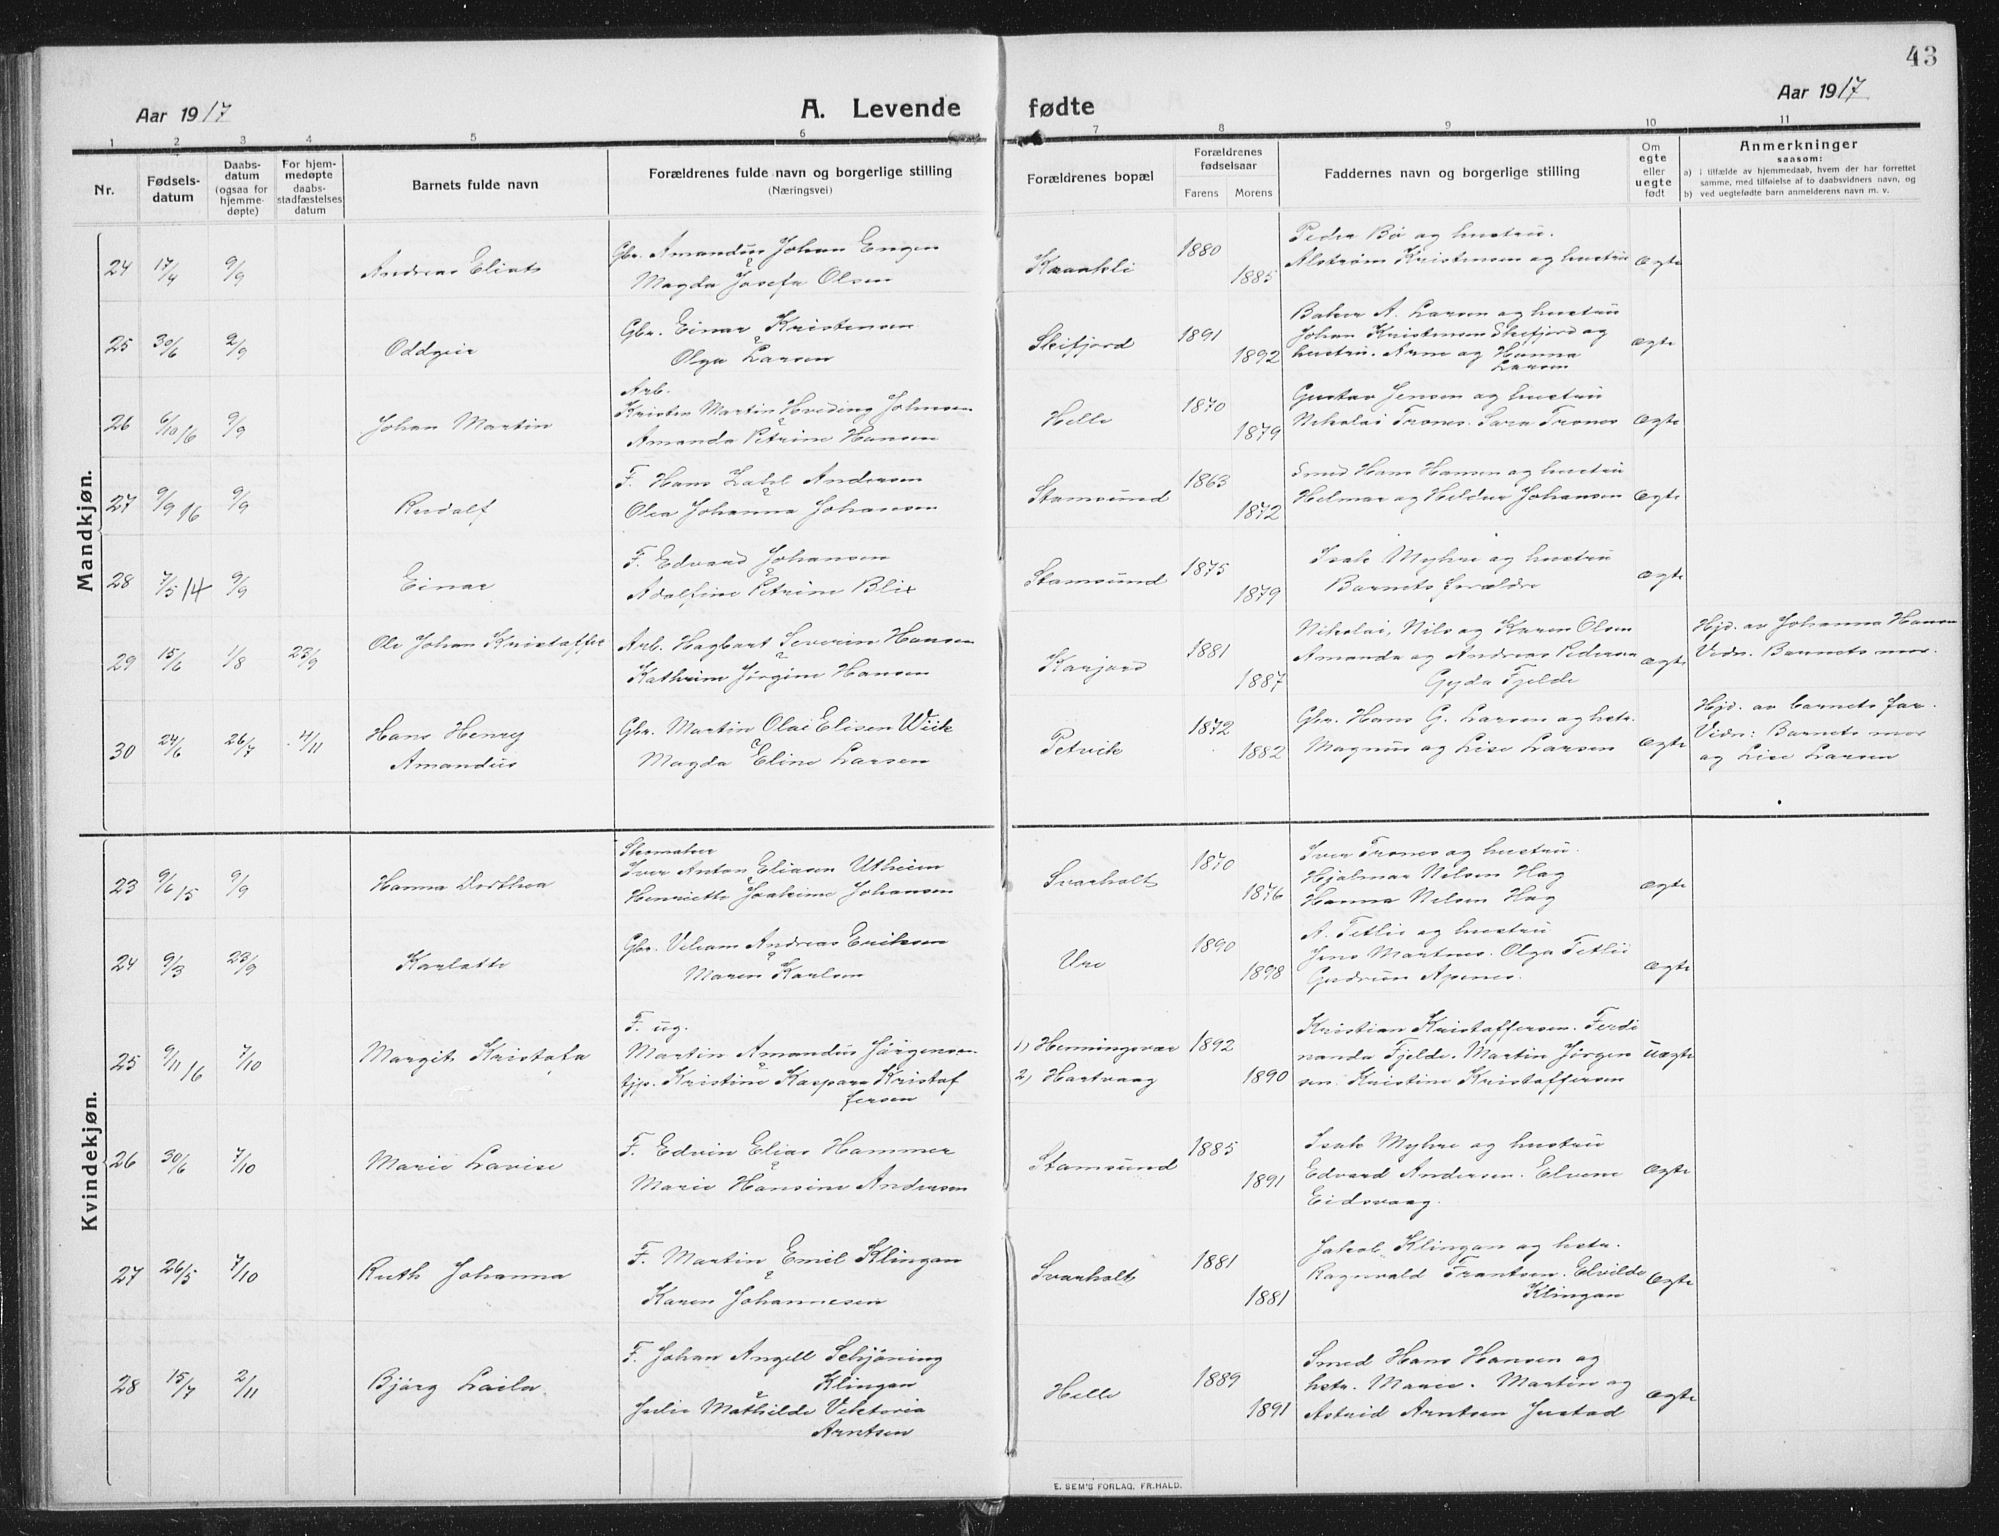 43
Aar 1917
A. Levende fødte
Aar 1917
1 2 3 4 5 6 7 8 9 10 11
Nr.
Fødsels-
datum
Daabs-
datum
(ogsaa for
hjemme-
døpte)
For hjem-
medøpte
daabs-
stadfæstelses
datum
Barnets fulde navn
Forældrenes fulde navn og borgerlige stilling
(Næringsvei)
Forældrenes bopæl
Forældrenes
fødselsaar
Farens Morens
Faddernes navn og borgerlige stilling
Om
egte
eller
uegte
født
Anmerkninger
saasom:
a) i tilfælde av hjemmedaab, hvem der har forrettet
samme, med tilføielse af to daabsvidners navn, og
b) ved uegtefødte barn anmelderens navn m. v.
Mandkjøn.
24 17/4 9/9 Andreas Eliats
Gbr. Amandus Johan Engen
& Magda Josefa Olsen
Kraakli 1880 1885
Peder Bö og hustru.
Alstrøm Kristensen og hustru
ægte
25 30/6 2/9 Oddgeir
Gbr. Einar Kristensen
& Olga Larsen
Skifjord 1891 1892
Baker A. Larsen og hustru
Johan Kristensen Skifjord og
hustru. Arne og Hanna
Larsen
ægte
26 6/10 16 9/9 Johan Martin
Arb.
Kristen Martin Hveding Johnsen
& Amanda Petrine Hansen
Helle 1870 1879
Gustav Jensen og hustru
Nikolai Trones. Sara Trones
ægte
27 9/9 16 9/9 Rudolf
F. Hans Dahl Andersen
& Olea Johanna Johansen
Stamsund 1863 1872
Smed Hans Hansen og hustru
Helmar og Heldur Johansen
ægte
28 7/5 14 9/9 Einar
F. Edvard Johansen
& Adolfine Petrine Blix
Stamsund 1875 1879
Isak Myhre og hustru
Barnets forældre
ægte
29 15/6 1/8 23/9 Ole Johan Kristoffer
Arb. Hagbart Severin Hansen
& Kathrine Jørgine Hansen
Karjord 1881 1887
Nikolai, Nils og Karen Olsen
Amanda og Andreas Pedersen
Gyda Fjelde
ægte
Hjd. av Johanna Hansen
Vidn. Barnets mor.
30 24/6 26/7 4/11 Hans Henry
Amandus
Gbr. Martin Olai Elisen Wiik
& Magda Eline Larsen
Petvik 1872 1882
Gbr. Hans G. Larsen og hstr.
Magnus og Lise Larsen
ægte
Hjd. av barnets far.
Vidn: Barnets mor
og Lise Larsen
Kvindekjøn.
23 9/6 15 9/9 Hanna Dorthea
Skomaker
Iver Anton Eliasen Utheim
& Henriette Joakime Johansen
Svarholt 1870 1876
Iver Trones og hustru.
Hjalmar Nilsen Hag
Hanna Nilsen Hag
ægte
24 9/3 23/9 Karlotte
Gbr. Veleam Andreas Eriksen
& Maren Karlsen
Ure 1890 1898
A. Tetlie og hustru
Jens Martnes. Olga Tetlie
Gudrun Apenes.
ægte
25 9/11 16 7/10 Margit Kristofa
F. ug.
Martin Amandus Jørgensen
& tjp. Kristine Kaspara Kristof
fersen
1) Henningsvær
2) Hartvaag
1892 1890
Kristian Kristoffersen. Ferdi
nanda Fjelde. Martin Jørgen
sen. Kristine Kristoffersen
uægte
26 30/6 7/10 Marie Lovise
F. Edvin Elias Hammer
& Marie Hansine Andersen
Stamsund 1885 1891
Isak Myhre og hustru
Edvard Andersen. Elvene
Eidsvaag.
ægte
27 26/5 7/10 Ruth Johanna
F. Martin Emil Klingan
& Karen Johannesen
Svarholt 1881 1881
Jakob Klingan og hstr.
Ragnvald Frantsen. Elvilde
Klingan
ægte
28 15/7 2/11 Bjørg Laila
F. Johan Angell Schjøning
Klingan
& Julie Mathilde Viktoria
Arntsen
Helle 1889 1891
Smed Hans Hansen og
hstr. Marie. Martin og
Astrid Arntsen Justad
ægte
E. SEM'S FORLAG, FR.HALD.